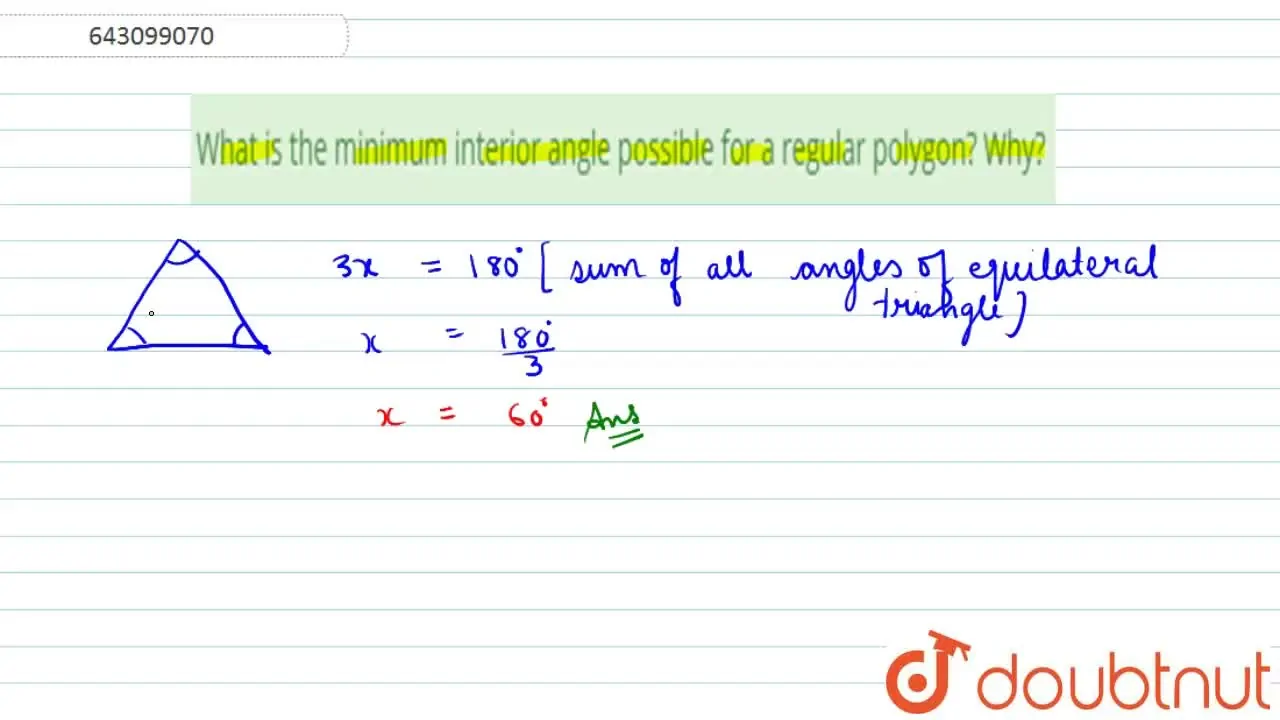 643099070
What is the minimum interior angle possible for a regular polygon? Why?
3x = 180° [sum of all angles of equilateral
triangle]
x = 180°/3
x = 60° Ans
doubtnut